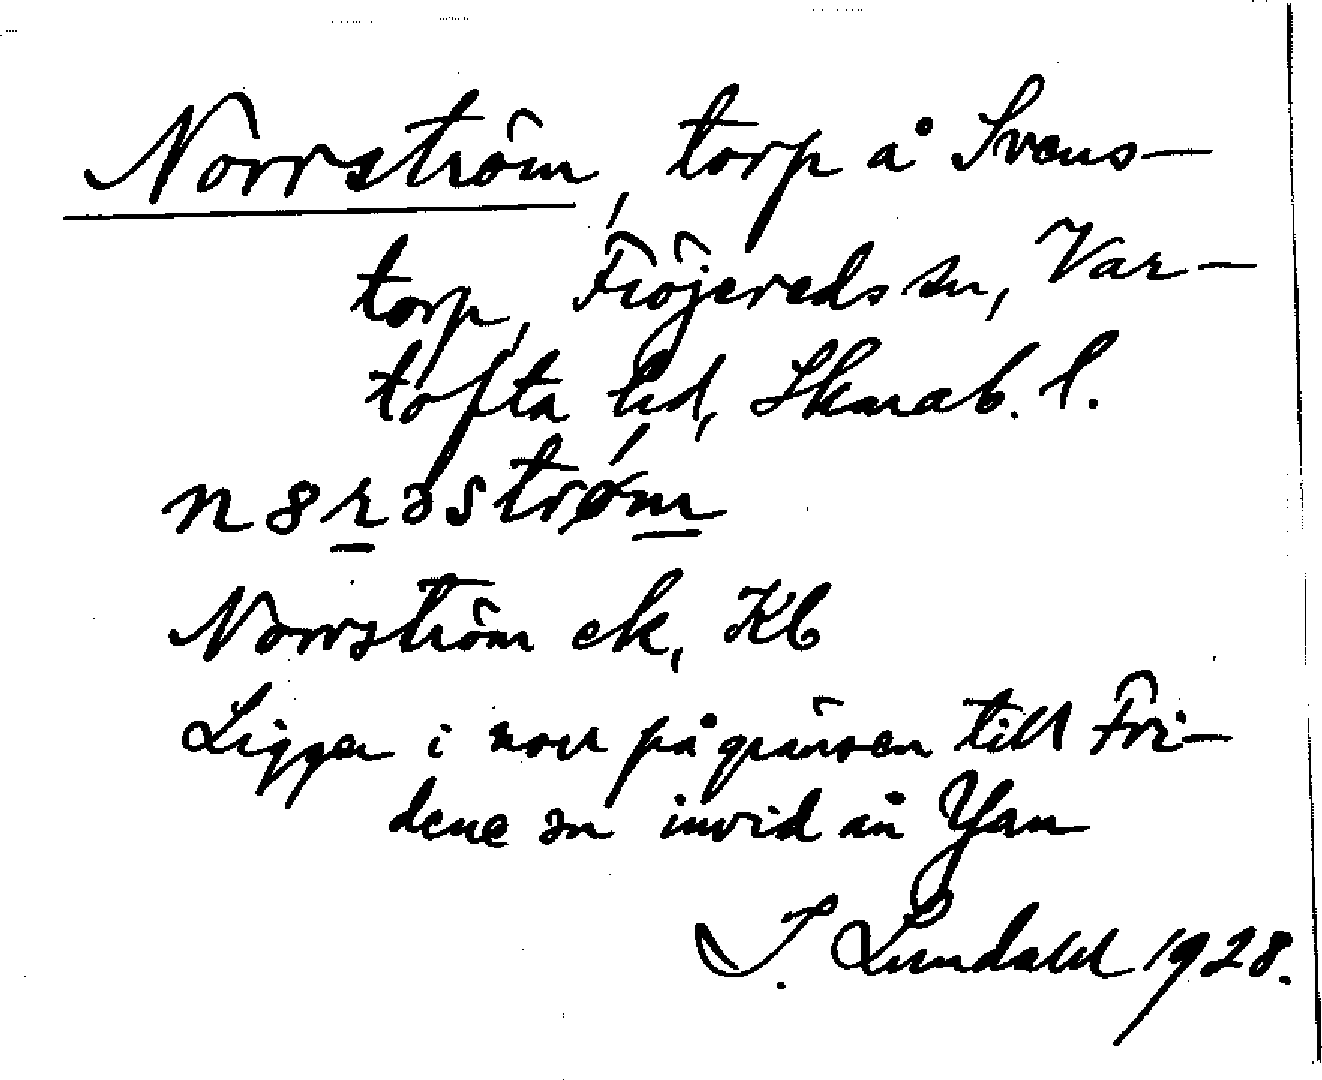 Norrström, torp å Svens-
torp, Fröjereds sn, Var-
tofta hd, Skarab. l.
n8rəstrǿm
Norrström ek, Kb
Ligger i norr på gränsen till Fri-
dene sn invid ån Yan
I. Lundahl 1928.